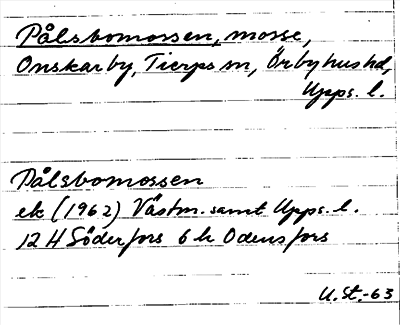 Pålsbomossen, mosse,
Onskarby, Tierps sn, Örbyhus hd,
Upps. l.
Pålsbomossen
ek (1962) Västm. samt Upps. l.
12 H Söderfors 6 h Odensfors
U.St.-63